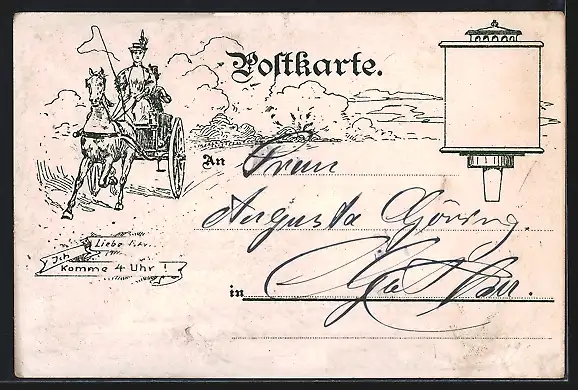 Postkarte.
An Frau
Augusta Göring.
in
Liebe
Ich
komme 4 Uhr!